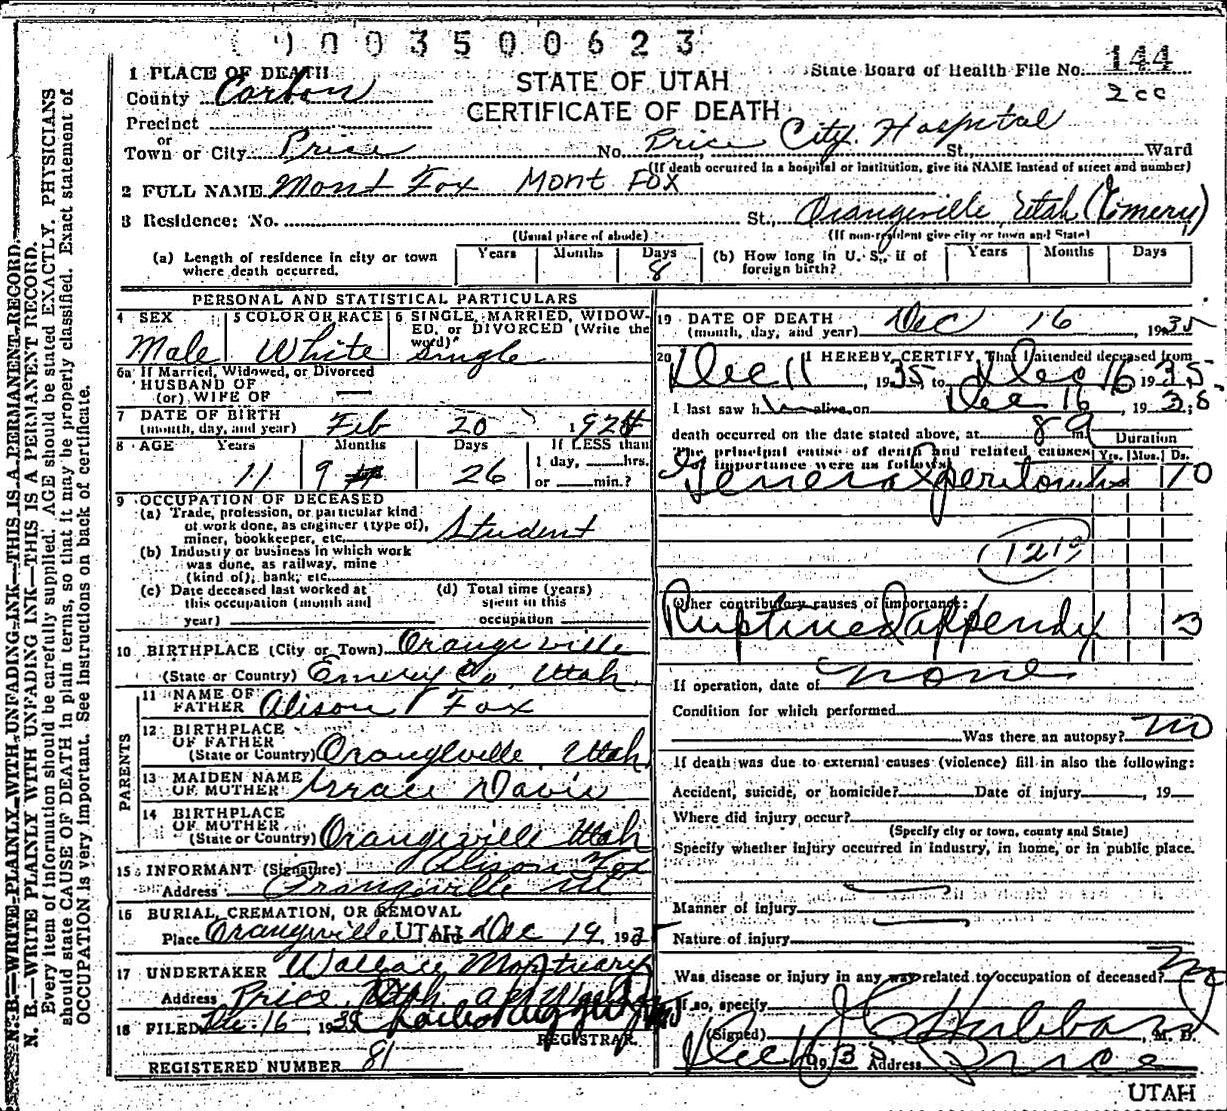 0003500623
1 PLACE OF DEATH
STATE OF UTAH
CERTIFICATE OF DEATH
State Board of Health File No. 144
2cc
County Carbon
Precinct
or
Town or City Price No. Price City Hospital St., Ward
(If death occurred in a hospital or institution, give its NAME instead of street and number)
2 FULL NAME Mont Fox Mont Fox
3 Residence: No. St., Orangeville, Utah (Emery)
(Usual place of abode) (If non-resident give city or town and State)
(a) Length of residence in city or town where death occurred. Years Months Days 8 (b) How long in U. S., if of foreign birth? Years Months Days
PERSONAL AND STATISTICAL PARTICULARS
4 SEX Male
5 COLOR OR RACE White
6 SINGLE, MARRIED, WIDOWED, or DIVORCED (Write the word) Single
6a If Married, Widowed, or Divorced
HUSBAND OF
(or) WIFE OF —
7 DATE OF BIRTH
(month, day, and year) Feb 20 1924
8 AGE Years 11 Months 9 Days 26 If LESS than
1 day, hrs.
or min.?
9 OCCUPATION OF DECEASED
(a) Trade, profession, or particular kind
of work done, as engineer (type of),
miner, bookkeeper, etc. Student
(b) Industry or business in which work
was done, as railway, mine
(kind of); bank; etc.
(c) Date deceased last worked at
this occupation (month and
year)
(d) Total time (years)
spent in this
occupation
10 BIRTHPLACE (City or Town) Orangeville
(State or Country) Emery Co, Utah.
PARENTS
11 NAME OF
FATHER Alison Fox
12 BIRTHPLACE
OF FATHER
(State or Country) Orangeville, Utah.
13 MAIDEN NAME
OF MOTHER Grace Davis
14 BIRTHPLACE
OF MOTHER
(State or Country) Orangeville Utah
15 INFORMANT (Signature) Alison Fox
Address Orangeville Ut
16 BURIAL, CREMATION, OR REMOVAL
Place Orangeville UTAH Dec 19 1935
17 UNDERTAKER Wallace Mortuary
Address Price, Utah
18 FILED Dec 16, 1935
REGISTRAR.
REGISTERED NUMBER 81
19 DATE OF DEATH
(month, day, and year) Dec 16, 1935
20 I HEREBY CERTIFY, That I attended deceased from
Dec 11, 1935 to Dec 16 1935
I last saw him alive on Dec 16, 1935
death occurred on the date stated above, at 8 a m. Duration
The principal cause of death and related causes Yrs. Mos. Ds.
of importance were as follows:
General peritonitis 10
121a
Other contributory causes of importance:
Ruptured appendix 3
If operation, date of none
Condition for which performed
Was there an autopsy? no
If death was due to external causes (violence) fill in also the following:
Accident, suicide, or homicide? Date of injury , 19
Where did injury occur?
(Specify city or town, county and State)
Specify whether injury occurred in industry, in home, or in public place.
Manner of injury
Nature of injury
Was disease or injury in any way related to occupation of deceased? no
If so, specify
(Signed) J C Hubbard, M. D.
Dec 1935 Address Price
UTAH
N. B.—WRITE PLAINLY WITH UNFADING INK—THIS IS A PERMANENT RECORD.
N. B.—WRITE PLAINLY WITH UNFADING INK—THIS IS A PERMANENT RECORD.
Every item of information should be carefully supplied. AGE should be stated EXACTLY. PHYSICIANS
should state CAUSE OF DEATH in plain terms, so that it may be properly classified. Exact statement of
OCCUPATION is very important. See instructions on back of certificate.